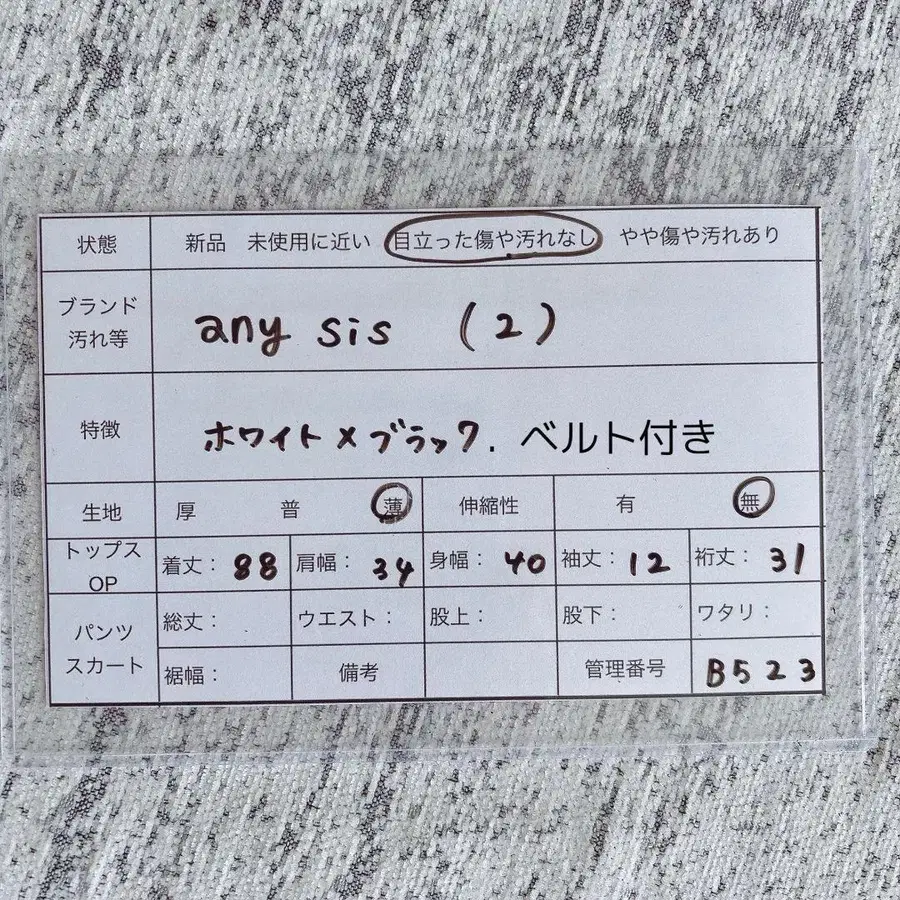 状態 新品 未使用に近い 目立った傷や汚れなし やや傷や汚れあり
ブランド
汚れ等
any sis (2)
特徴
ホワイト×ブラック. ベルト付き
生地 厚 普 薄 伸縮性 有 無
トップス
OP
着丈: 88 肩幅: 34 身幅: 40 袖丈: 12 裄丈: 31
パンツ
スカート
総丈: ウエスト: 股上: 股下: ワタリ:
裾幅: 備考 管理番号 B523